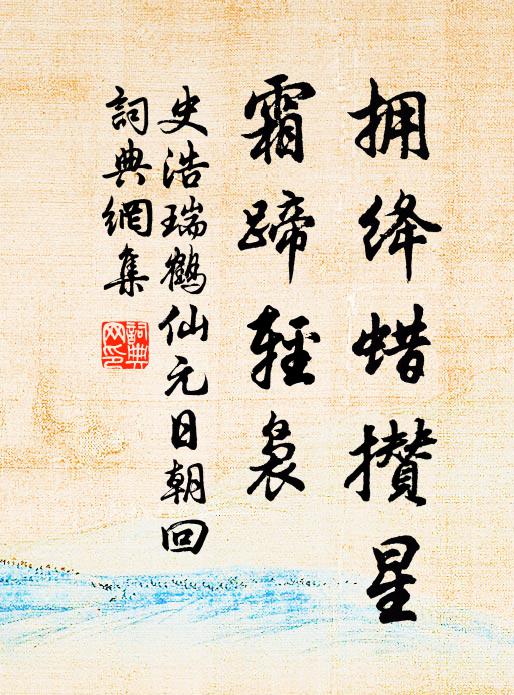 拥绛蜡攒星
霜蹄輕裊
史浩瑞鶴仙元日朝回
詞典網集
詞典網印